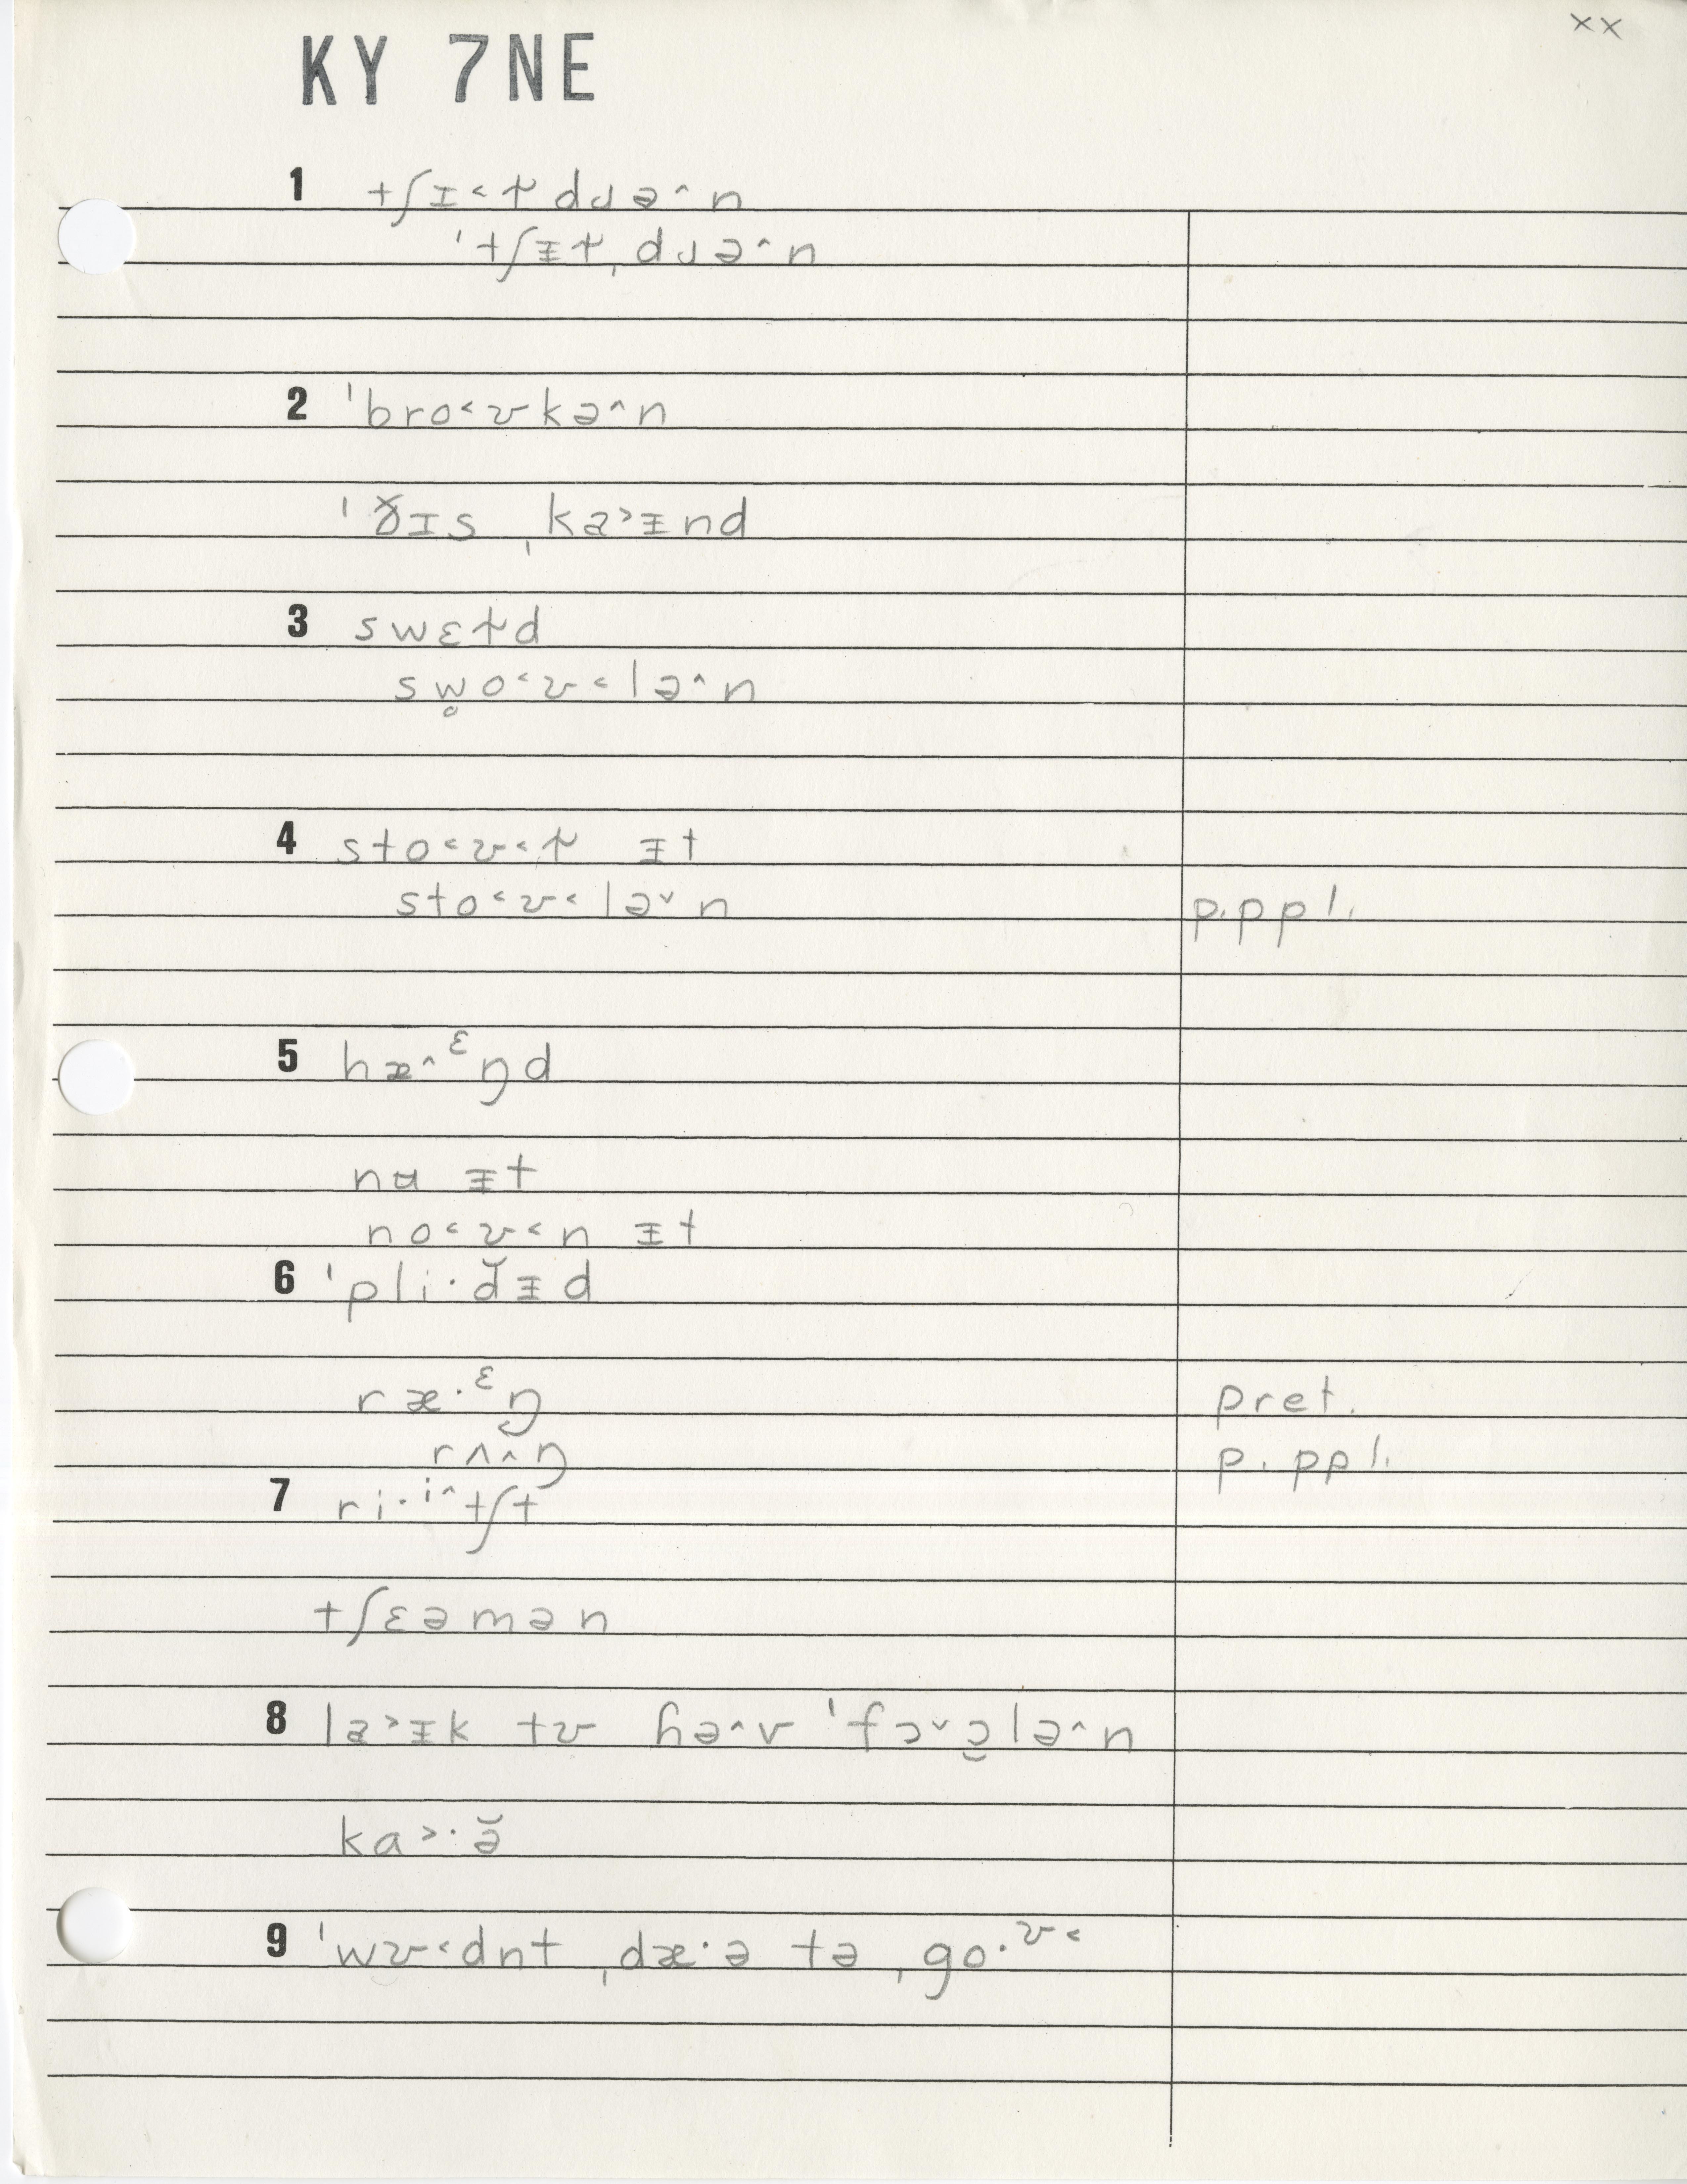 xx
KY 7NE
1 tʃɪ˂ɫdɹə˄n
ˈtʃɪ̵ɫˌdɹə˄n
2 ˈbro˂ʊkə˄n
ˈðɪs ˌka˃ɪ̵nd
3 swɛɫd
sw̥o˂ʊ˂lə˄n
4 sto˂ʊ˂ɫ ɪ̵t
sto˂ʊ˂lə˅n p.ppl.
5 hæ˄ᵋŋd
nʉ ɪ̵t
no˂ʊ˂n ɪ̵t
6 ˈpli·d̆ɪ̵d
ræ·ᵋŋ pret.
rʌ˄ŋ p.ppl.
7 ri·ⁱ˄tʃt
tʃɛəmən
8 la˃ɪ̵k tʊ ɦə˄v ˈfɔ˅ɔ̮lə˄n
ka˃·ə̆
9 ˈwʊ˂dnt ˌdæ·ə tə ˌgo·ᶷ˂